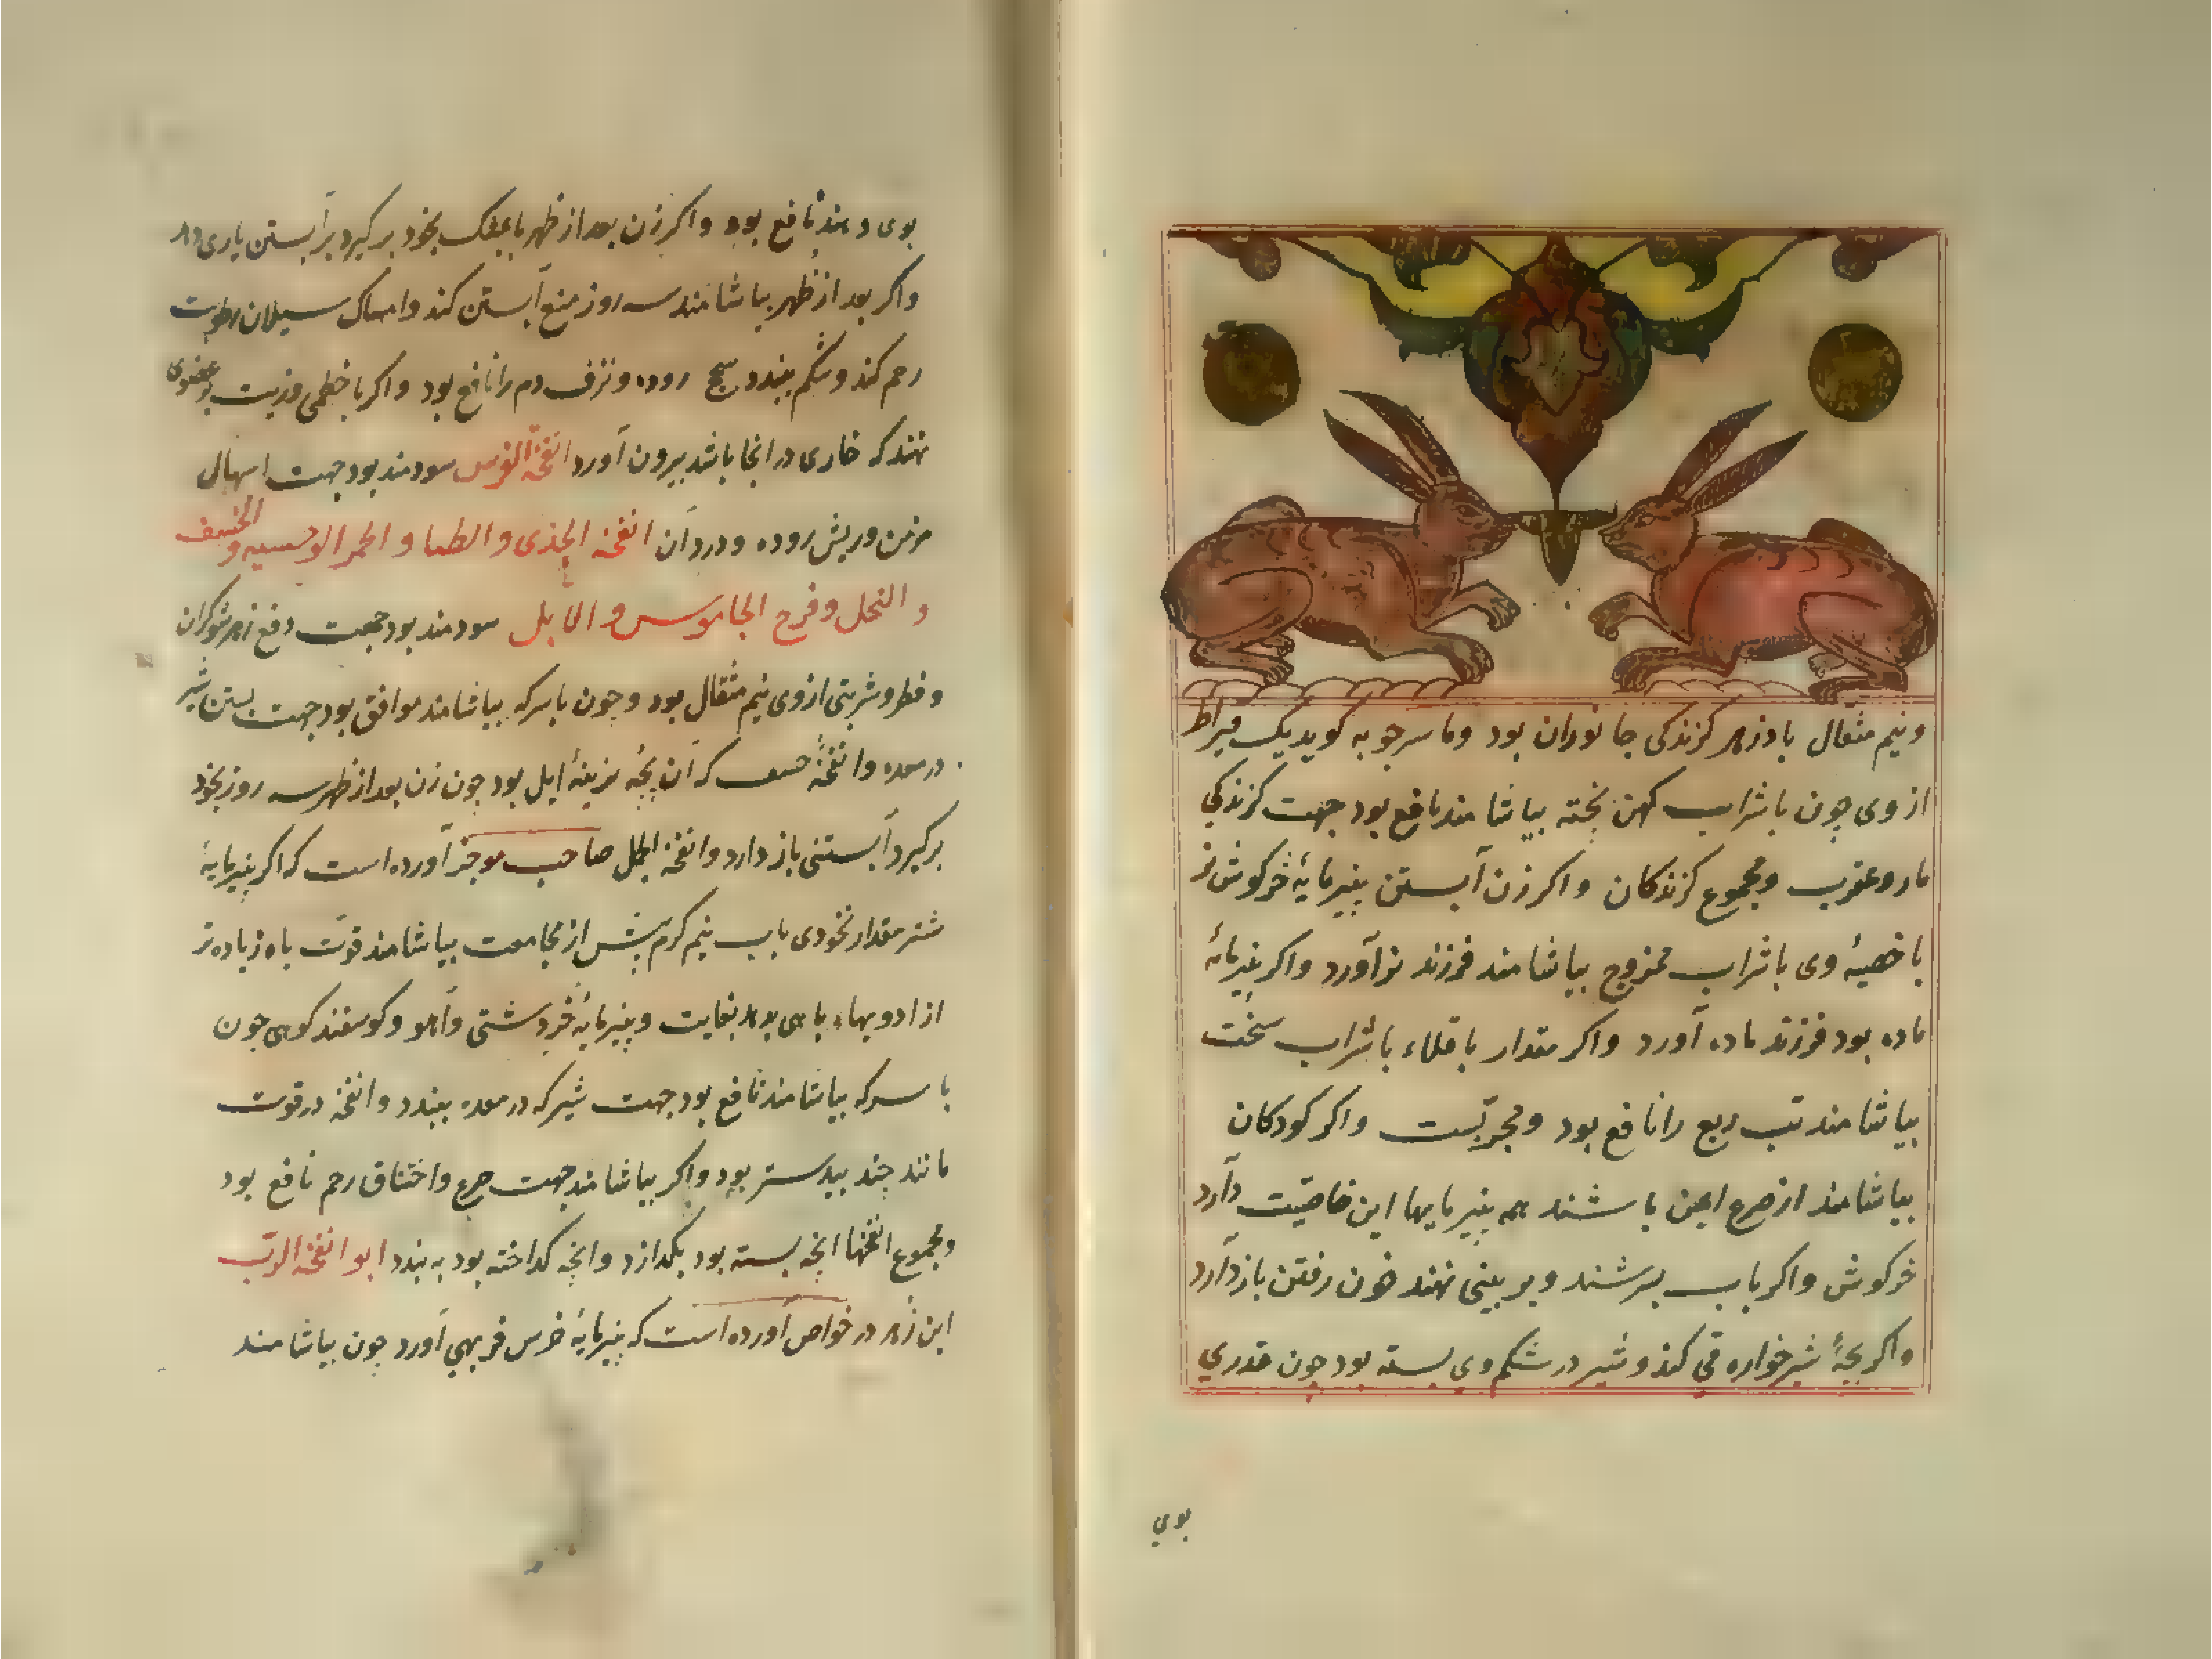 ونیم مثقال بادزهر کزندکی جانوران بود وماسرجویه کوید یک قیراط
از وی چون با شراب کهن پخته بیاشامند نافع بود جهت کزندکی
مار وعقرب ومجموع کزندکان واکر زن آبستن پنیرمایهٔ خرکوش نر
با خصیهٔ وی با شراب ممزوج بیاشامند فرزند نر آورد واکر پنیرمایهٔ
ماده بود فرزند ماده آورد واکر مقدار باقلاء با شراب سخت
بیاشامند تب ربع را نافع بود ومجربست واکر کودکان
بیاشامند از صرع ایمن باشند همه پنیرمایها این خاصیّت دارد
خرکوش واکر باب بسرشند وبر بینی نهند خون رفتن بازدارد
واکر بچهٔ شیرخواره قی کند وشیر در شکم وی بسته بود چون قدری
بوی
بوی دهند نافع بود واکر زن بعد از طهر با بخود برکیرد بر آبستن یاری دهد
واکر بعد از طُهر بیاشامند سه روز منع آبستن کند وامساک سیلان رطوبت
رحم کند وشکم ببندد سحج روده ونزف دم را نافع بود واکر با خطمی وزیت بر عضوی
نهند که خاری در انجا باشد بیرون آورد انفخة الفرس سودمند بود جهت اسهال
مزمن وریش روده ودرد آن انفخه الجدی و الظبا و الحمر الوحسیه و الخشف
و العجل وفرح الجاموس و الایل سودمند بود جهت دفع زهر شوکران
وفطر وشربتی از وی نیم مثقال بود وچون با سرکه بیاشامند موافق بود جهت بستن شیر
در معده وانفخهٔ خشف که آن بچهٔ نرینهٔ ایل بود چون زن بعد از طهر سه روز بخود
برکیرد آبستنی بازدارد وانفخة الجمل صاحب موجز آورده است که اکر پنیرمایهٔ
شتر مقدار نخودی باب نیم کرم پیش از مجامعت بیاشامند قوّت باه زیاده تر
از ادویهاء باهی بدهد بغایت وپنیرمایهٔ خر دشتی وآهو وکوسفند کوهی چون
با سرکه بیاشامند نافع بود جهت شیر که در معده ببندد وانفخه در قوت
مانند جند بیدستر بود واکر بیاشامند جهت صرع واختناق رحم نافع بود
ومجموع انفخها انچه بسته بود بکدازد وانچه کداخته بود به بندد ابو انفخه الدبّ
ابن زهر در خواص آورده است که پنیرمایهٔ خرس فربهی آورد چون بیاشامند